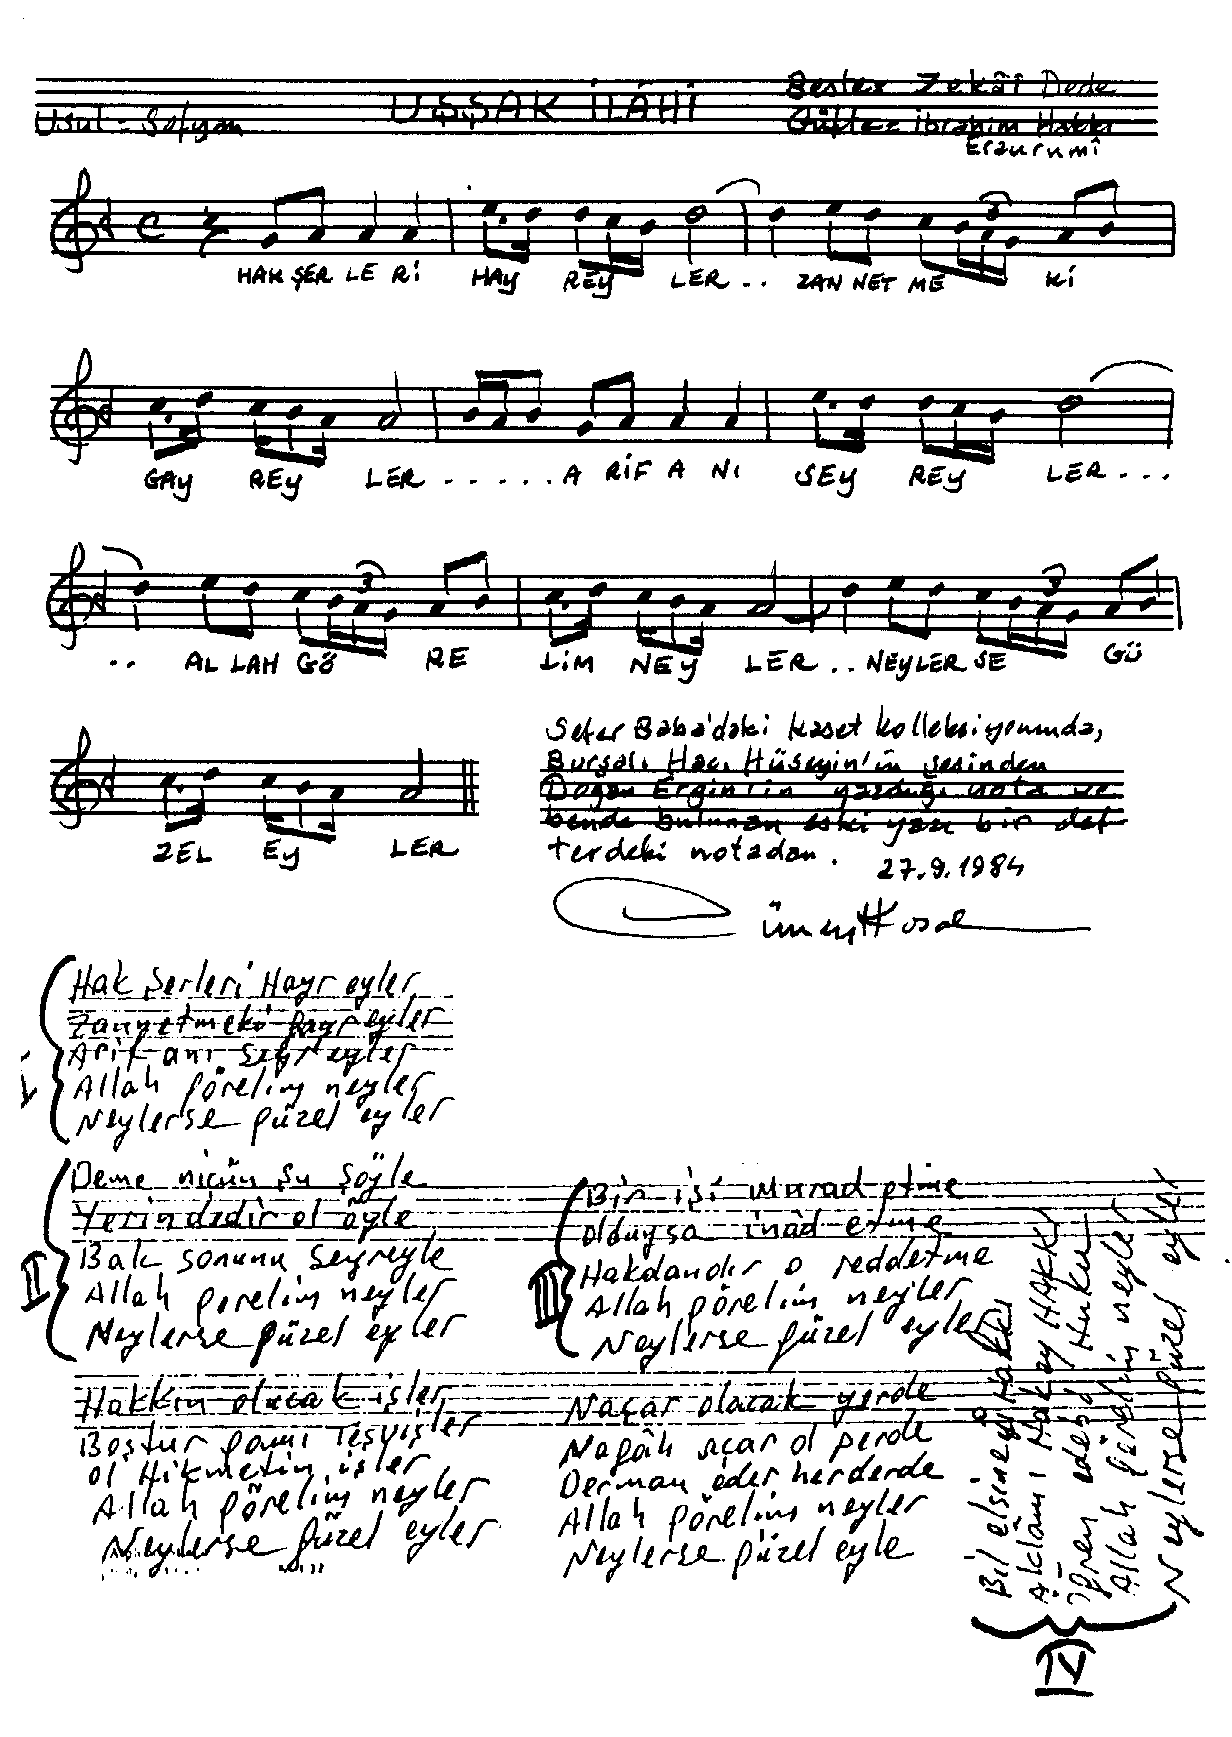 UŞŞAK İLÂHİ
Usul = Sofyan
Beste = Zekâî Dede
Güfte = İbrahim Hakkı
Erzurumî
HAK ŞER LE Rİ HAY REY LER .. ZAN NET ME Kİ
GAY REY LER ..... A RİF A NI SEY REY LER ...
.. AL LAH GÖ RE LİM NEY LER .. NEYLER SE GÜ
ZEL EY LER
Sefer Baba'daki kaset kolleksiyonunda,
Bursalı Hacı Hüseyin'in sesinden
Doğan Ergin'in yazdığı nota ve
bende bulunan eski yazı bir def
terdeki notadan.
27.9.1984
I
Hak Şerleri Hayr eyler
Zannetmeki gayr eyler
Arif anı seyr eyler
Allah görelim neyler
Neylerse güzel eyler
II
Deme niçün şu şöyle
Yerindedir ol öyle
Bak sonunu seyreyle
Allah görelim neyler
Neylerse güzel eyler
III
Bir işi murad etme
olduysa inâd etme
Hakdandır o reddetme
Allah görelim neyler
Neylerse güzel eyler
Hakkın olucak işler
Boştur gamı teşvişler
Ol Hikmetin işler
Allah görelim neyler
Neylerse güzel eyler
Naçar olacak yerde
Nagâh açar ol perde
Derman eder her derde
Allah görelim neyler
Neylerse güzel eyle
IV
Bil elsine-i
Aklâmı Hak ey HAKKI
Öğren edeb-i
Allah görelim neyler
Neylerse güzel eyler